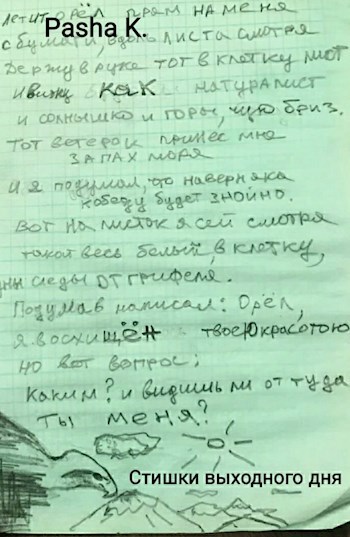 Pasha K.
летит орёл прям на меня
с бумаги, вдоль листа смотря
Держу в руке тот в клетку лист
и вижу как натуралист
и солнышко и горы, чую бриз.
Тот ветерок принёс мне
запах моря
и я подумал, что наверняка
к обеду будет знойно.
Вот на листок я сей смотря
такой весь белый, в клетку,
следы от грифеля.
Подумав написал: Орёл,
я восхищён твоею красотою
но вот вопрос;
Каким? и видишь ли оттуда
ты меня?
Стишки выходного дня